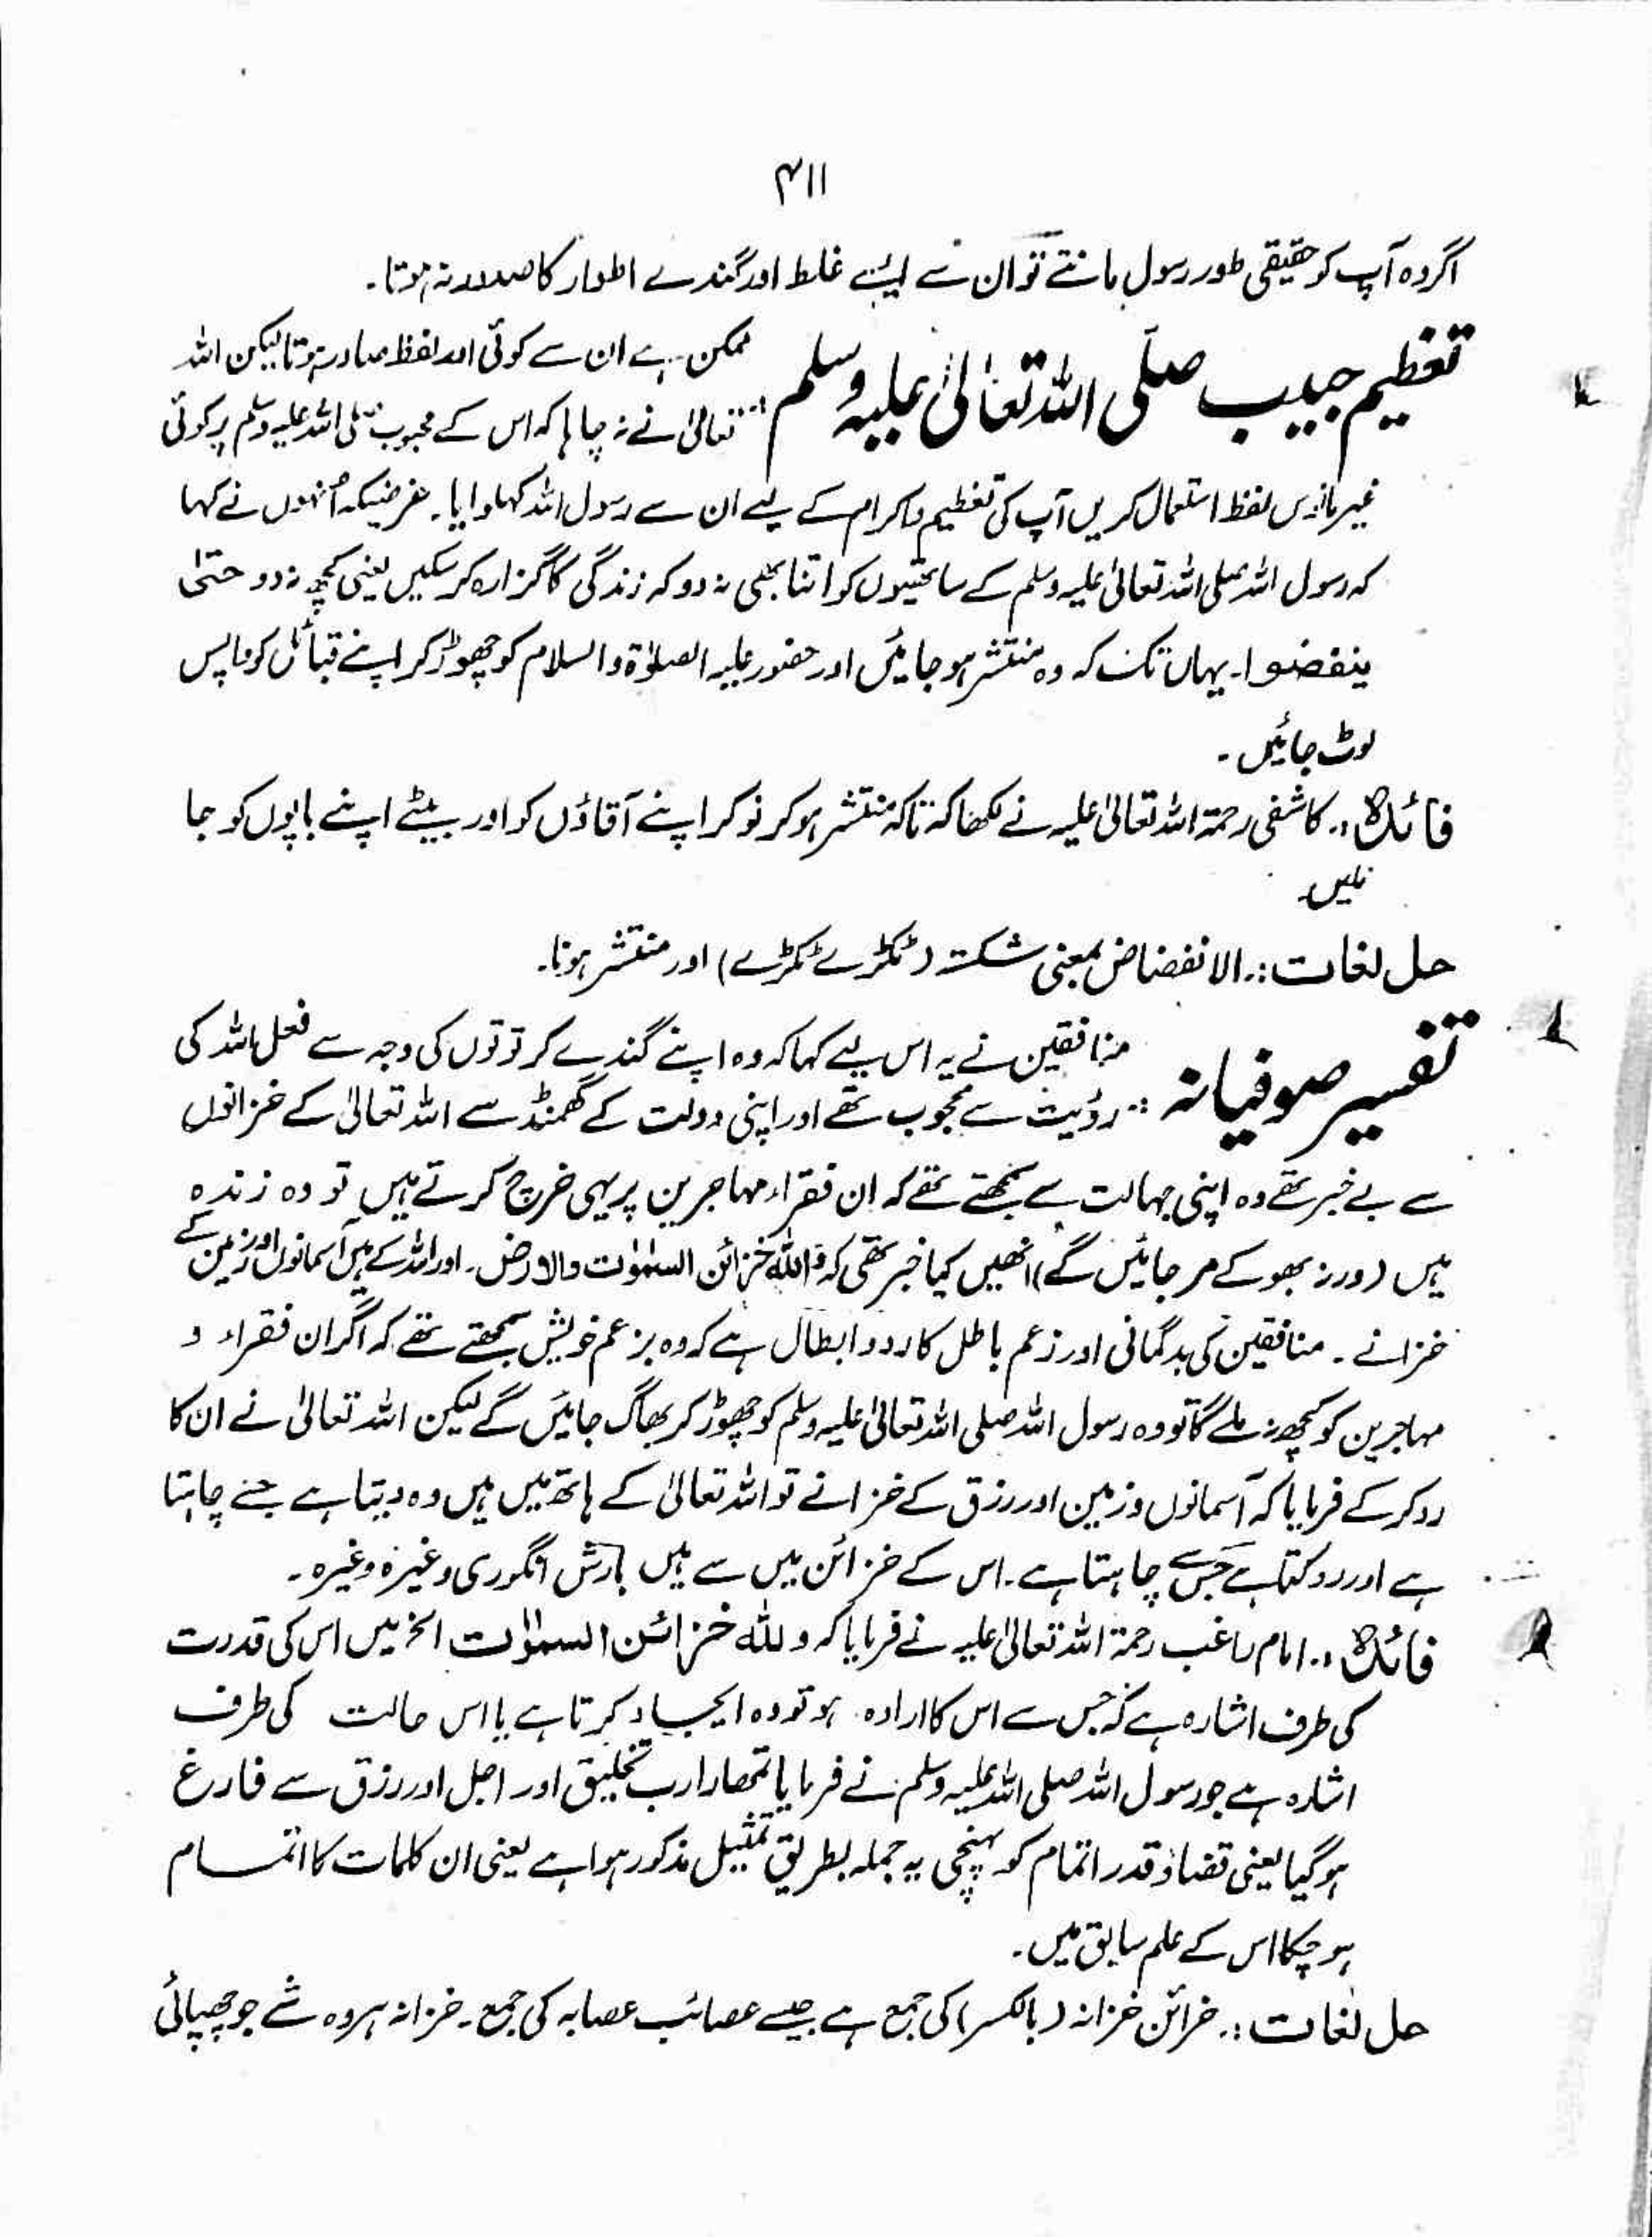 ۴۱۱
اگر وہ آپ کو حقیقی طور رسول مانتے تو ان سے ایسے غلط اور گندے اطوار کا صدور نہ ہوتا۔
تعظیم حبیب صلّی اللہ تعالٰی علیہ وسلم :- ممکن ہے ان سے کوئی اور لفظ صادر ہوتا لیکن اللہ
تعالیٰ نے نہ چاہا کہ اس کے محبوب صلی اللہ علیہ وسلم پر کوئی
غیر مانوس لفظ استعمال کریں آپ کی تعظیم و اکرام کے لیے ان سے رسول اللہ کہلوایا۔ غرضیکہ اُنہوں نے کہا
کہ رسول اللہ صلی اللہ تعالیٰ علیہ وسلم کے ساتھیوں کو اتنا بھی نہ دو کہ زندگی کا گزارہ کر سکیں یعنی کچھ نہ دو حتیٰ
ینفضوا۔ یہاں تک کہ وہ منتشر ہو جائیں اور حضور علیہ الصلوٰۃ والسلام کو چھوڑ کر اپنے قبائل کو واپس
لوٹ جائیں۔
فائدہ :۔ کاشفی رحمۃ اللہ تعالیٰ علیہ نے لکھا کہ تاکہ منتشر ہو کر نوکر اپنے آقاؤں کو اور بیٹے اپنے باپوں کو جا
ملیں۔
حل لغات :۔ الانفضاض بمعنی شکستہ (ٹکڑے ٹکڑے) اور منتشر ہونا۔
تفسیر صوفیانہ :- منافقین نے یہ اس لیے کہا کہ وہ اپنے گندے کرتوتوں کی وجہ سے فعل اللہ کی
رؤیت سے محجوب تھے اور اپنی دولت کے گھمنڈ سے اللہ تعالیٰ کے خزانوں
سے بے خبر تھے وہ اپنی جہالت سے سمجھتے تھے کہ ان فقراء مہاجرین پر یہی خرچ کرتے ہیں تو وہ زندہ
ہیں (ورنہ بھوکے مر جائیں گے) انھیں کیا خبر تھی کہ وَاللہ خزائن السمٰوٰت والارض۔ اور اللہ کے ہیں آسمانوں اور زمین کے
خزانے۔ منافقین کی بدگمانی اور زعم باطل کا رد و ابطال ہے کہ وہ بزعم خویش سمجھتے تھے کہ اگر ان فقراء و
مہاجرین کو کچھ نہ ملے گا تو وہ رسول اللہ صلی اللہ تعالیٰ علیہ وسلم کو چھوڑ کر بھاگ جائیں گے لیکن اللہ تعالیٰ نے ان کا
رد کر کے فرمایا کہ آسمانوں و زمین اور رزق کے خزانے تو اللہ تعالیٰ کے ہاتھ میں ہیں وہ دیتا ہے جسے چاہتا
ہے اور روکتا ہے جس سے چاہتا ہے۔ اس کے خزائن میں سے ہیں بارش انگوری وغیرہ وغیرہ۔
فائدہ :۔ امام راغب رحمۃ اللہ تعالیٰ علیہ نے فرمایا کہ وللّٰہ خزائن السمٰوٰت الخ میں اس کی قدرت
کی طرف اشارہ ہے کہ جس سے اس کا ارادہ ہو تو وہ ایجاد کرتا ہے یا اس حالت کی طرف
اشارہ ہے جو رسول اللہ صلی اللہ علیہ وسلم نے فرمایا تمھارا رب تخلیق اور اجل اور رزق سے فارغ
ہو گیا یعنی قضاؤ قدر اتمام کو پہنچی یہ جملہ بطریق تمثیل مذکور ہوا ہے یعنی ان کلمات کا اتمام
ہو چکا اس کے علم سابق میں۔
حل لغات :۔ خزائن خزانہ (بالکسر) کی جمع ہے جیسے عصائب عصابہ کی جمع۔ خزانہ ہر وہ شے جو چھپائی